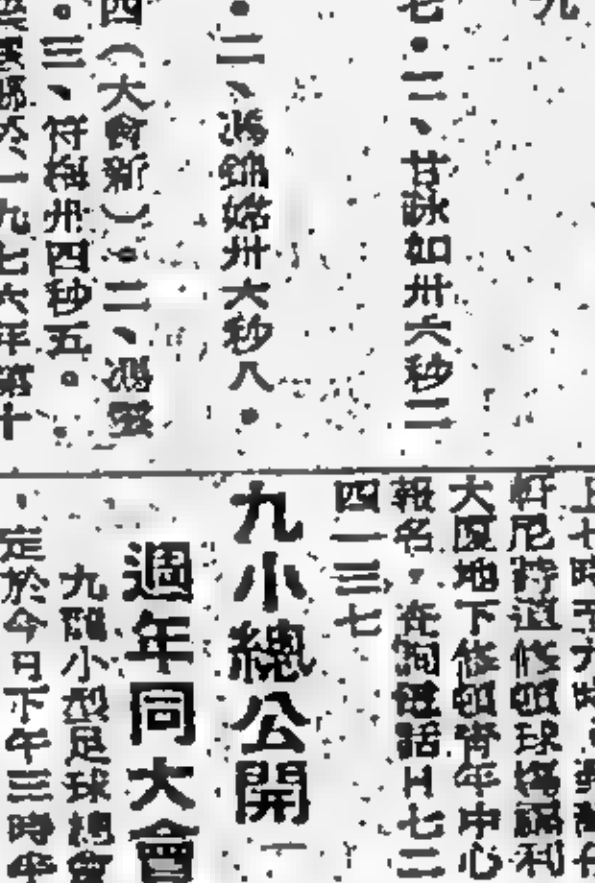 九
七・二、甘詠如卅六秒二
・二、馮錦嫦卅六秒八・
四（大會新）。二、馮雪
。三、符樹卅四秒五。
一九七六年第十
上七時五
軒尼詩道修頓球場
大厦地下修頓青年中心
報名，查詢電話H七二
四一三七
九小總公開
週年同大會
九龍小型足球總會
，定於今日下午三時半